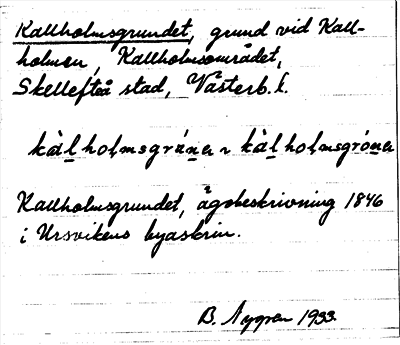 Kallholmsgrundet, grund vid Kall-
holmen, Kallholmsområdet,
Skellefteå stad, Västerb. l.
kàl holmsgrúna ~ kàl holmsgróna
Kallholmsgrundet, ägobeskrivning 1846
i Ursvikens byaskrin.
B. Nygren 1933.